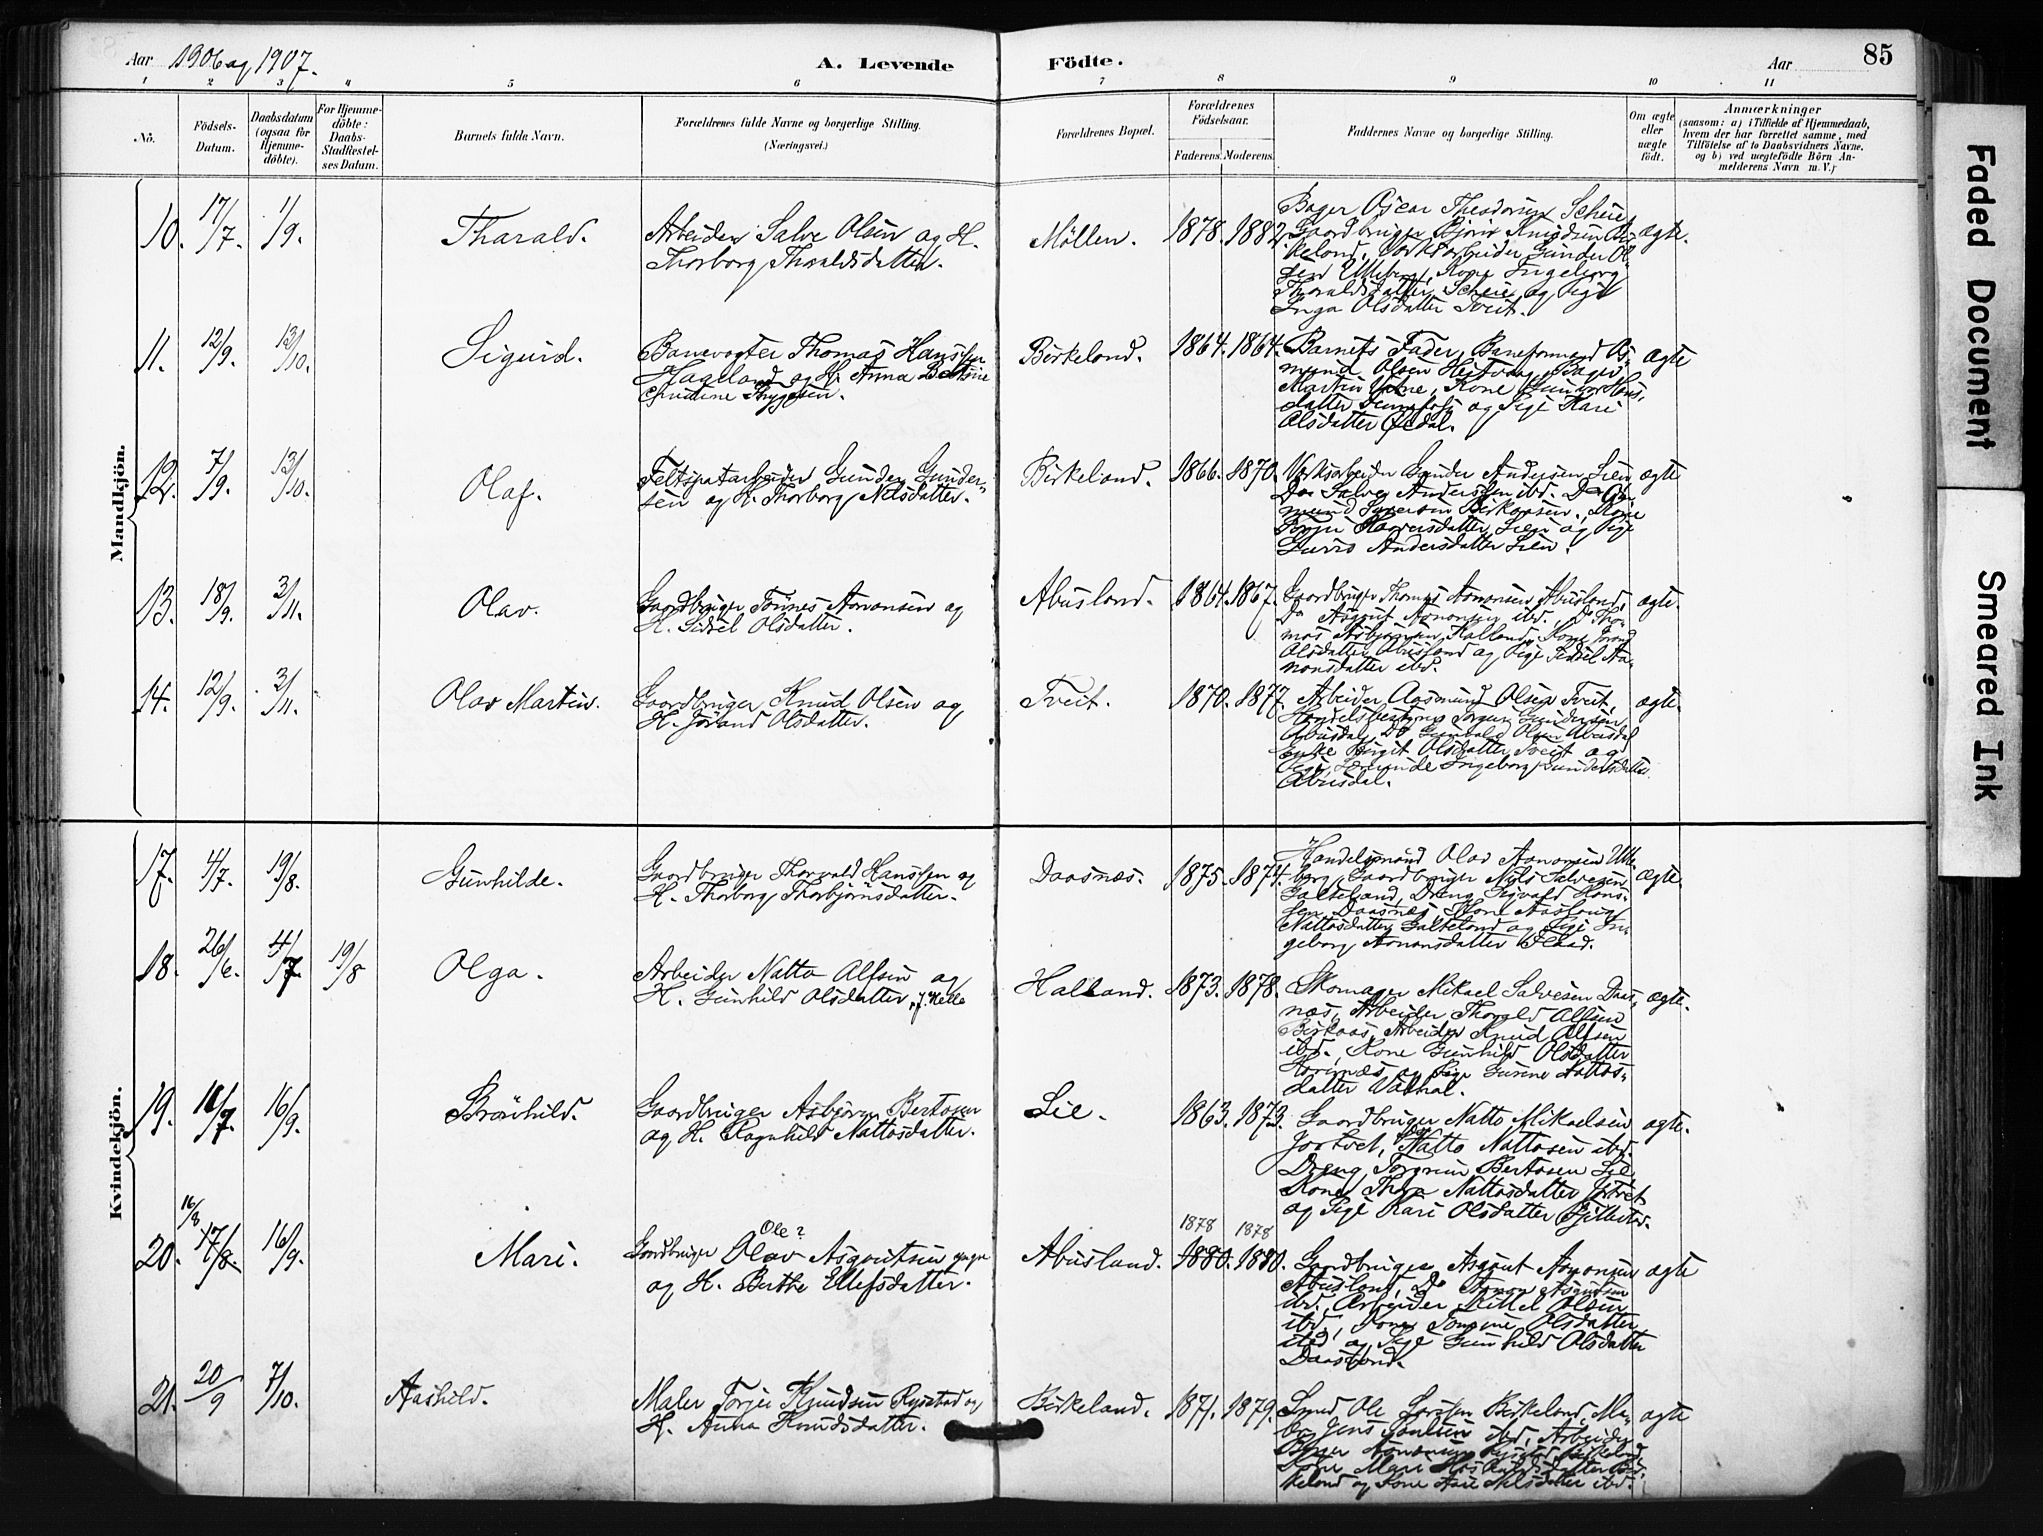 Aar 1906 og 1907.
A. Levende Födte.
Aar
85
1 2 3 4 5 6 7 8 9 10 11
No.
Födsels-Datum.
Daabsdatum (ogsaa for Hjemme-döbte).
For Hjemme-döbte: Daabs-Stadfæstel-ses Datum.
Barnets fulde Navn.
Forældrenes fulde Navne og borgerlige Stilling.
(Næringsvei.)
Forældrenes Bopæl.
Forældrenes Födselsaar.
Faderens. Moderens.
Faddernes Navne og borgerlige Stilling.
Om ægte eller uægte födt.
Anmærkninger
(saasom: a) i Tilfælde af Hjemmedaab,
hvem der har forrettet samme, med
Tilföielse af to Daabsvidners Navne.
og b) ved uægtefödte Börn An-
melderens Navn m. V.)
Mandkjön.
10. 17/7. 1/9. Tharald. Arbeider Salve Olsen og H.
Thorborg Tharaldsdatter.
Möllen. 1878. 1882.
Bager Oscar Theodorsen Scheie,
Gaardbruger Björn Knudsen Bir-
keland, Værksarbeider Gunder Ol-
sen Uleberg, Kone Ingeborg
Tharaldsdatter Scheie og Pige
Inga Olsdatter Tveit.
ægte.
11. 12/9. 13/10. Sigurd. Banevogter Thomas Hanssen
Haaland og H. Anna
Thygesen.
Birkeland. 1864. 1864.
Barnets Fader, Baneformand Os-
mund Olsen
Martin Kone
datter og Pige Kari
Olsdatter
ægte
12. 7/9. 13/10. Olaf. Feltspatarbeider Gunder Gunder-
sen og H. Thorborg Nilsdatter.
Birkeland. 1866. 1870.
Værksarbeider Gunder Andersen Lien,
Do Salve Anderssen ibd. Do
mund Kone
Lien og Pige
Andersdatter Lien.
ægte
13. 18/9. 3/11. Olav. Gaardbruger Tönnes Aanonsen og
H. Sidsel Olsdatter.
Abusland. 1864. 1867.
Gaardbruger Thomas Aanonsen Abusland,
Do Asgout Aanonsen ibd. Do Tho-
mas Asbjörnsen Kalland, Kone
Olsdatter Abusland og Pige Sidsel Aa-
nonsdatter ibd.
ægte.
14. 12/9. 3/11. Olav Martin. Gaardbruger Knud Olsen og
H. Jörand Olsdatter.
Tveit. 1870. 1877.
Arbeider Aasmund Olsen Tveit,
Handelsbestyrer Gundersen
Abusdal, Do Gunvald Olsen Abusdal
Enke Birgit Olsdatter Tveit og
Pige Ingeborg Gundersdatter
Abusdal.
ægte.
Kvindekjön.
17. 4/7. 19/8. Gunhilde. Gaardbruger Thorvald Hanssen og
H. Thorborg Thorbjörnsdatter.
Daasnæs. 1875. 1874.
Handelsmand Olav Aanonsen Ule-
berg, Gaardbruger Nils Salvesen
Galteland, Dreng Sigvald Hans-
sen Daasnæs, Kone Aaslaug
Nattosdatter Galteland og Pige In-
geborg Aanonsdatter
ægte.
18. 26/6. 4/7 19/8 Olga. Arbeider Natto Alfsen og
H. Gunhild Olsdatter, f. Helle
Halland. 1873. 1878.
Skomager Mikael Salvesen Daas-
næs, Arbeider Thorald Alfsen
Birkaas, Arbeider Knud Alfsen
ibd. Kone Gunhild Olsdatter
og Pige Gurine Nattos-
datter
ægte.
19. 11/7. 16/9. Brönhild. Gaardbruger Asbjörn Bertosen
og H. Ragnhild Nattosdatter.
Lie. 1863. 1873.
Gaardbruger Natto Mikaelsen
Jortvet, Do Natto Nattosen ibd.
Dreng Torgrim Bertosen Lie,
Kone Thora Nattosdatter Jortvet
og Pige Kari Olsdatter
ægte.
20. 16/8 17/8. 16/9. Mari. Ole?
Gaardbruger Olav Asgoutsen
og H. Berthe Ellefsdatter.
Abusland. 1878 1878
1880. 1880.
Gaardbruger Asgout Aanonsen
Abusland, Do Aanon Asgoutsen
ibd. Arbeider Kittel Olsen
ibd, Kone Tomine Olsdatter
ibd og Pige Gunhild Olsdatter
Daastrand.
ægte
21. 20/9 7/10. Aashild. Maler Torjer Knudsen Rysstad og
H. Anna Knudsdatter.
Birkeland. 1871. 1879.
Smed Ole Larssen Birkeland, Ma-
ler Jens Poulsen ibd, Arbeider
Aanonsen
Kone Mari
keland og Kone Nilsdatter ibd.
ægte
Faded Document
Smeared Ink